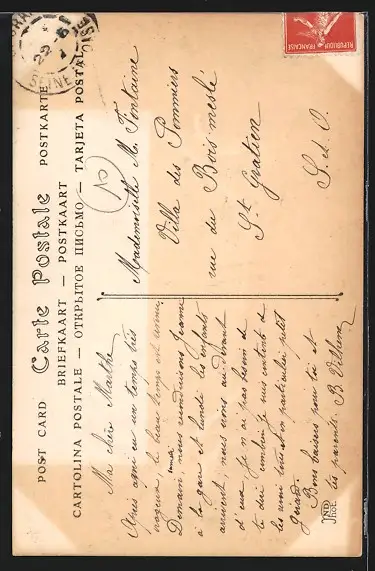 POST CARD Carte Postale POSTKARTE
BRIEFKAART — POSTKAART
CARTOLINA POSTALE — ОТКРЫТОЕ ПИСЬМО — TARJETA POSTAL
Ma chère Marthe
Après avoir eu un temps très
orageux, le beau temps est revenu.
Demain, lundi nous conduisons Jeanne
à la gare et lundi les enfants
arrivent, nous irons au devant
d'eux. Je n'ai pas besoin de
te dire combien je suis contente de
les voir tous et en particulier petit
Gérard.
Bons baisers pour toi et
tes parents. B.
ND
PHOT
Mademoiselle M. Fontaine
Villa des Pommiers
rue du Bois meslé
St Gratien
S. et O.
29
REPUBLIQUE FRANÇAISE